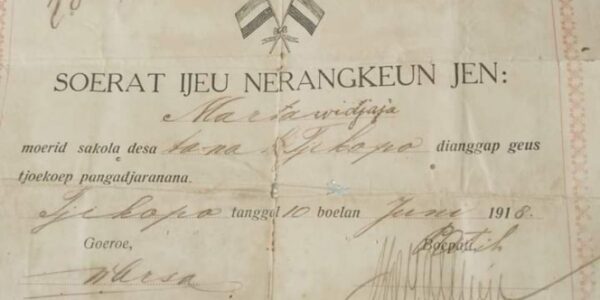 SOERAT IJEU NERANGKEUN JEN:
Martawidjaja
moerid sakola desa tana Tjikopo dianggap geus
tjoekoep pangadjaranana.
Tjikopo tanggal 10 boelan Juni 1918.
Goeroe,